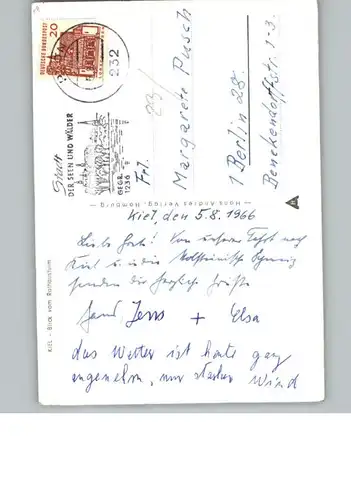 DEUTSCHE BUNDESPOST
20
232
DER SEEN UND WÄLDER
GEGR.
1236
Frl.
Margarete Pusch
1 Berlin 28.
Benekendorffstr. 1-3.
— Hans Andres Verlag, Hamburg —
KIEL - Blick vom Rathausturm
Kiel, den 5.8.1966
Von unserer Fahrt nach
Kiel u. in die Holsteinische Schweiz
senden die herzlichsten Grüße
Jens + Elsa
das Wetter ist heute ganz
angenehm, nur starker Wind